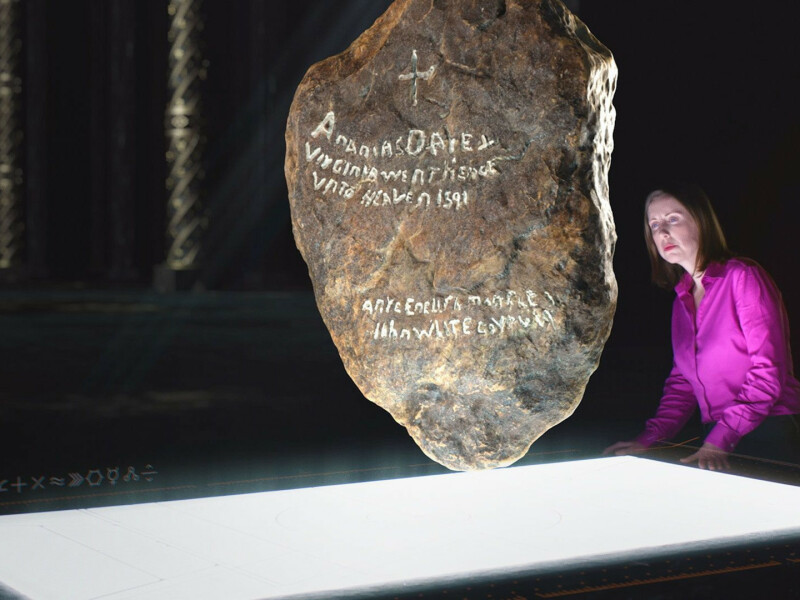 ANANIAS DARE &
VIRGINIA WENT HENCE
VNTO HEAVEN 1591
ANYE ENGLISHMAN
IOHN WHITE GOVR